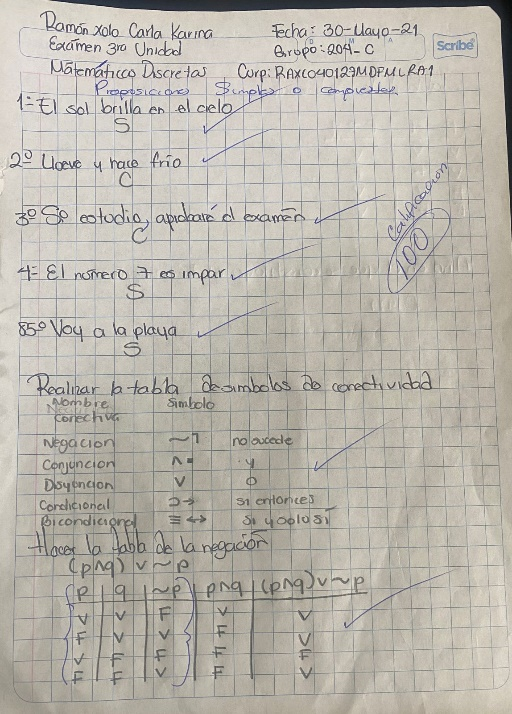 Ramón xolo Carla Karina
Fecha: 30-Mayo-21
Exámen 3ra Unidad
Grupo: 204-C
Scribe
Matemáticas Discretas
Curp: RAXC040129MDFMLRA1
Proposiciones Simples o compuestas
1= El sol brilla en el cielo
S
2º Llueve y hace frio
C
3º Si estudio, aprobaré el examén
C
4= El número 7 es impar
S
Calificacion
100
85º Voy a la playa
S
Realizar la tabla de simbolos de conectividad
Nombre conectiva
Simbolo
Negacion ~ ┐ no sucede
Conjuncion ∧ ▪ y
Disyuncion ∨ o
Condicional ⊃ → si entonces
Bicondicional ≡ ↔ si y solo si
Hacer la tabla de la negación
(p∧q) ∨ ~p
p q ~p p∧q (p∧q)∨~p
V V F V V
F V V F V
V F F F F
F F V F V